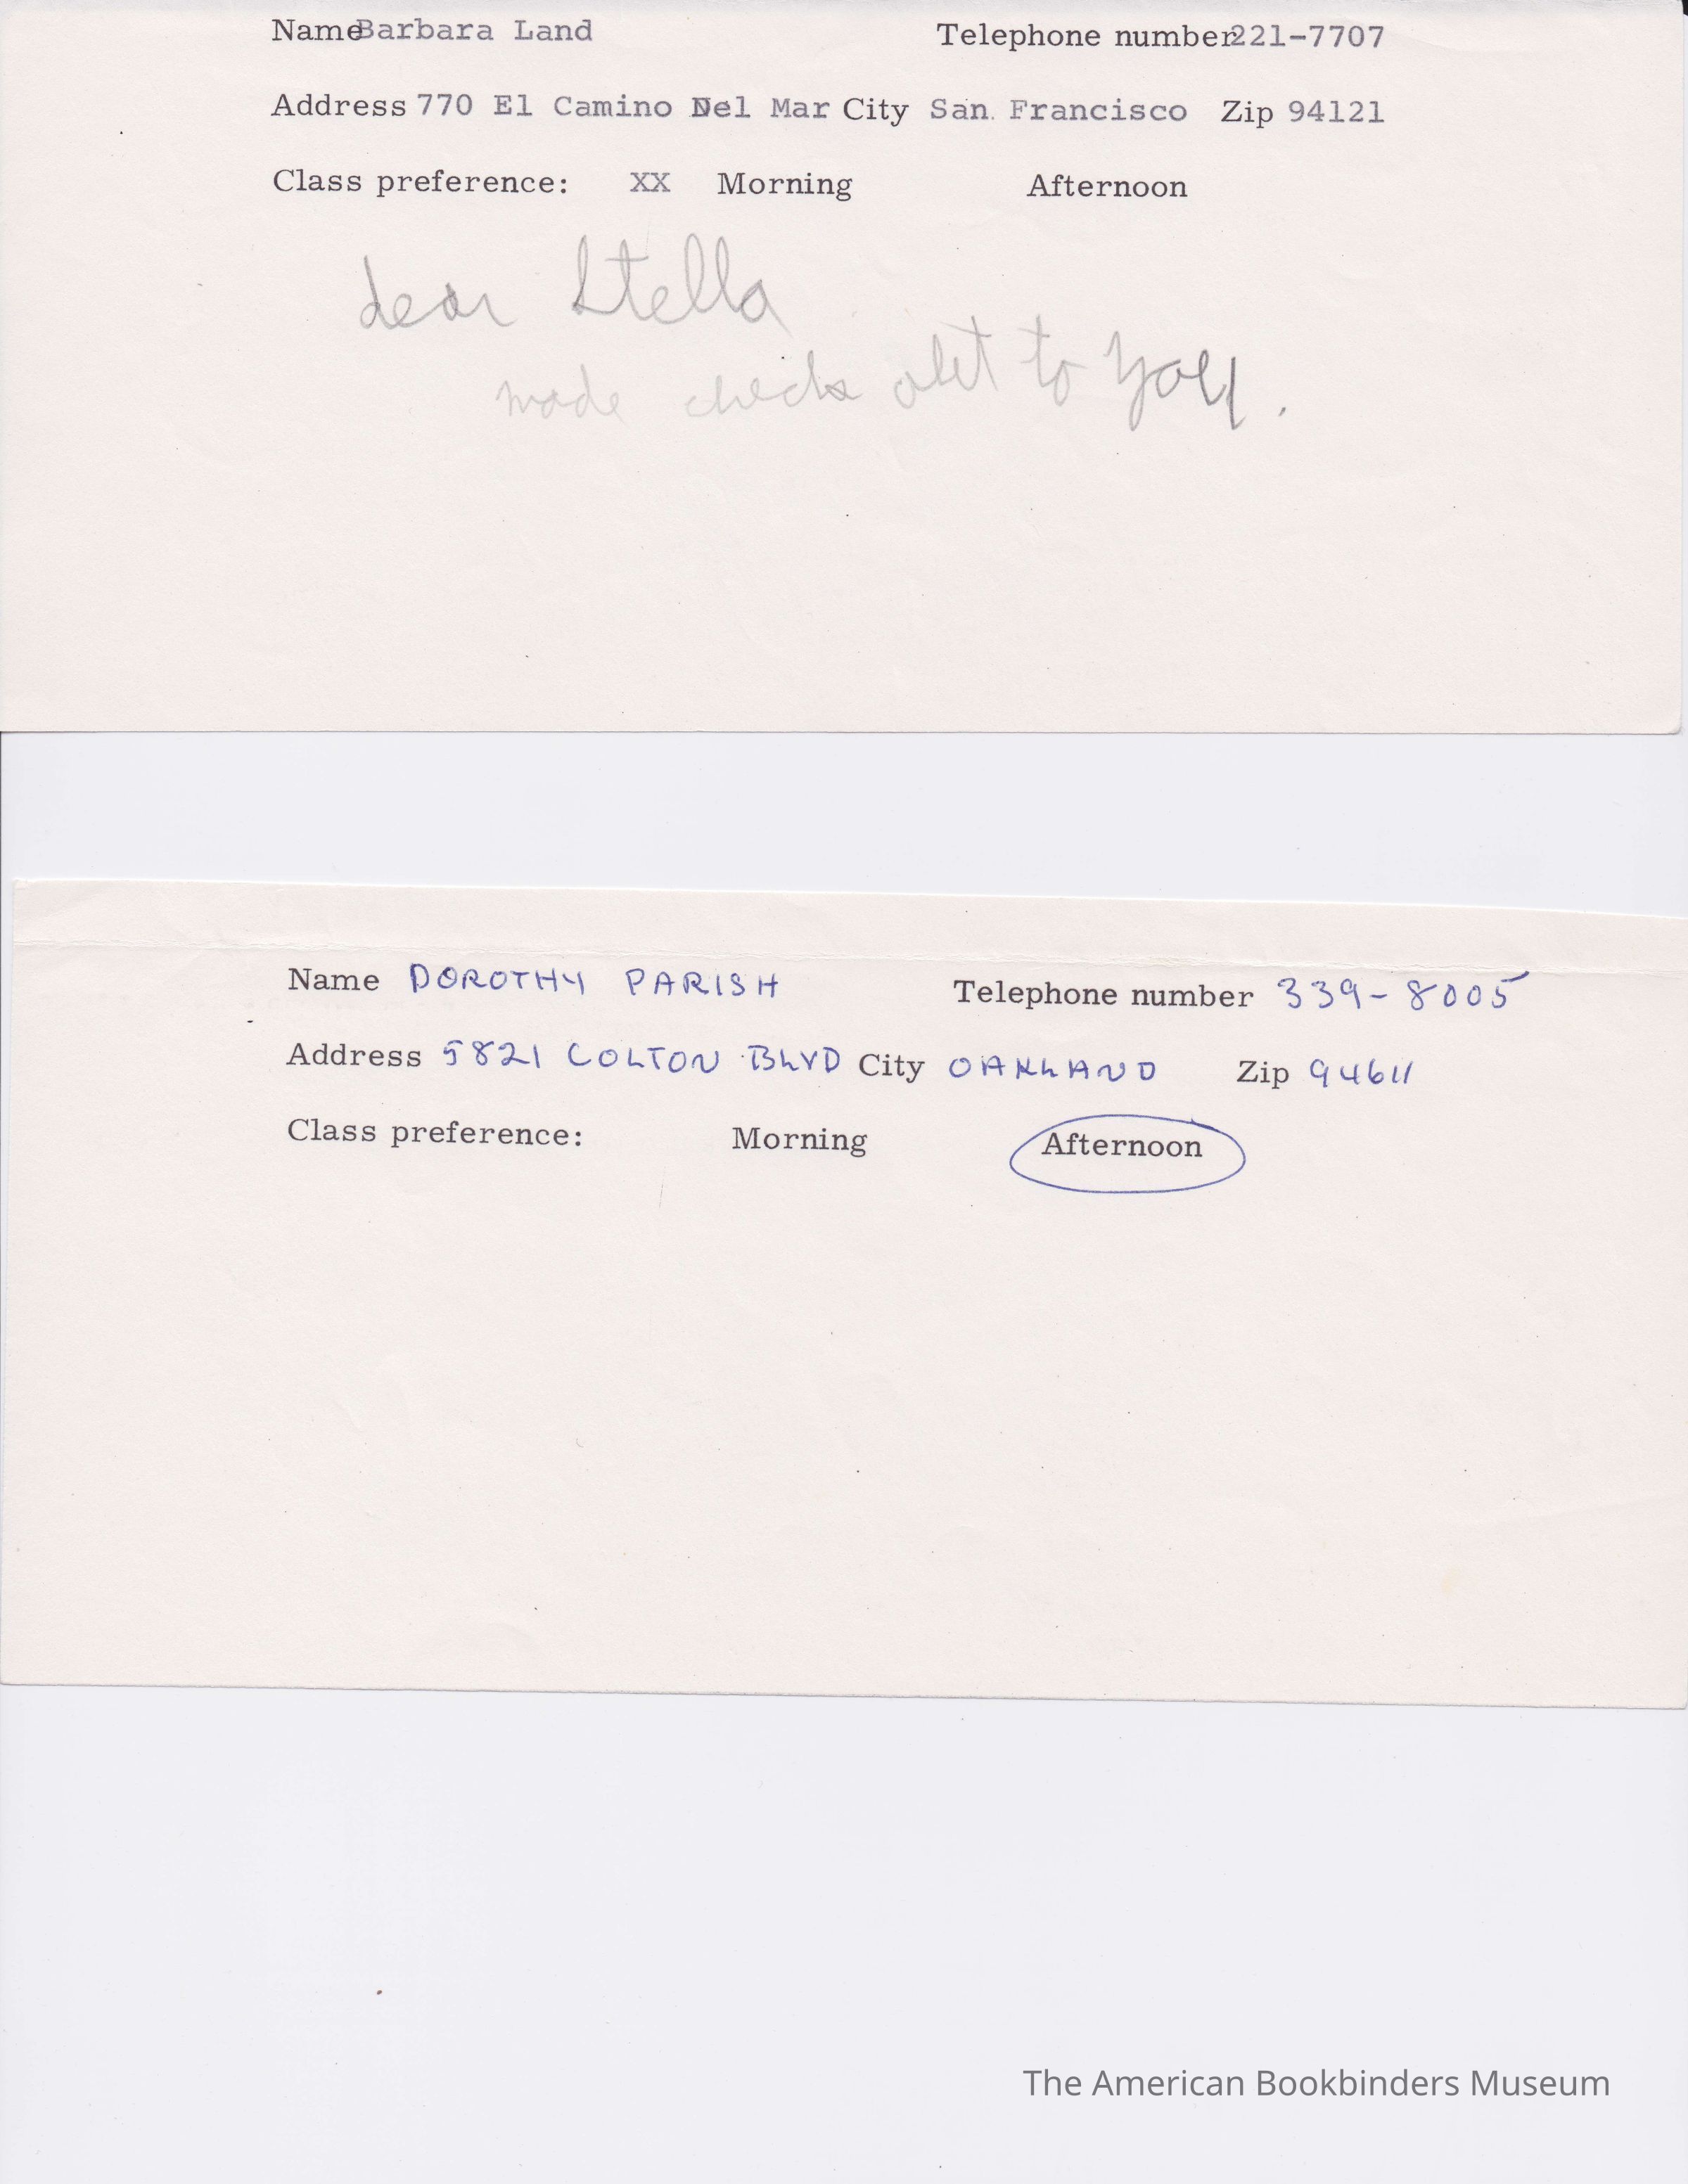 Name Barbara Land Telephone number 221-7707
Address 770 El Camino Del Mar City San Francisco Zip 94121
Class preference: XX Morning Afternoon
dear Stella
made checks out to you.
Name DOROTHY PARISH Telephone number 339-8005
Address 5821 COLTON BLVD City OAKLAND Zip 94611
Class preference: Morning Afternoon
The American Bookbinders Museum